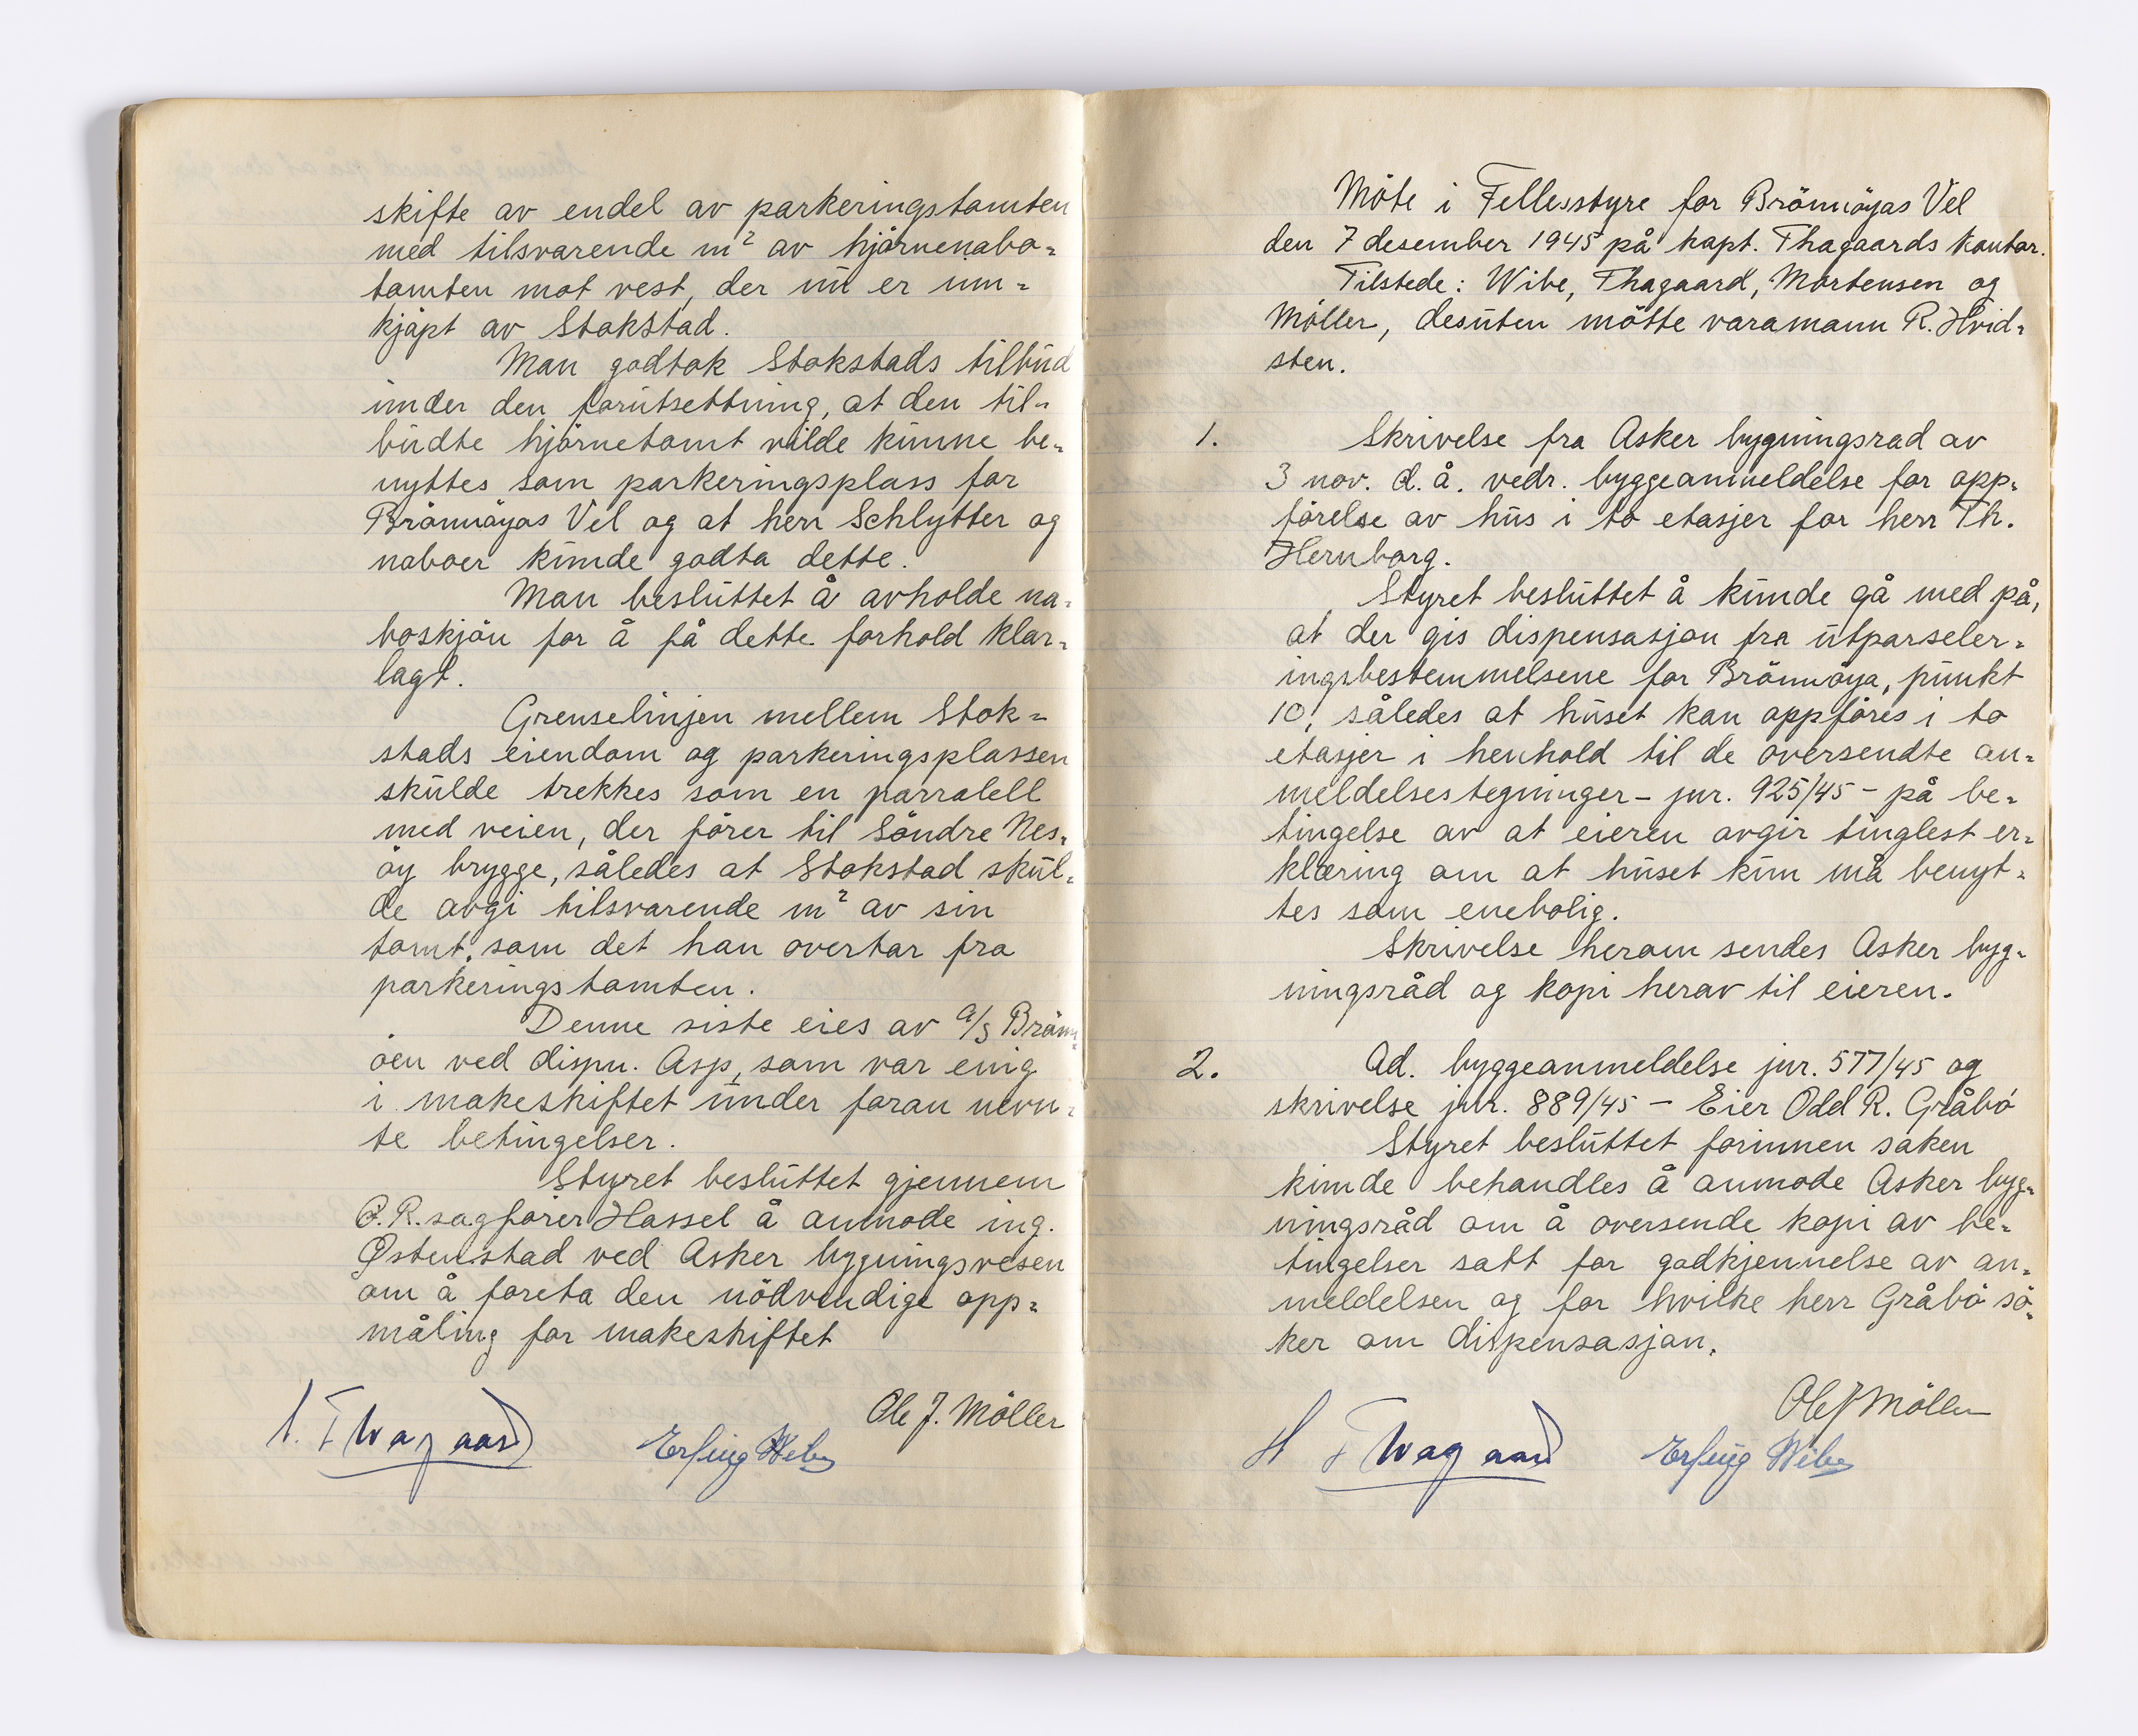 skifte av endel av parkeringstomten
med tilsvarende m² av hjörnenabo=
tomten mot vest, der nu er inn=
kjöpt av Stokstad.
Man godtok Stokstads tilbud
under den forutsettning, at den til=
budte hjörnetomt vilde kunne be=
nyttes som parkeringsplass for
Brönnöyas Vel og at herr Schlytter og
naboer kunde godta dette.
Man besluttet å avholde na=
boskjön for å få dette forhold klar=
lagt.
Grenselinjen mellem Stok=
stads eiendom og parkeringsplassen
skulde trekkes som en parralell
med veien, der förer til Söndre Nes=
öy brygge, således at Stokstad skul=
de avgi tilsvarende m² av sin
tomt, som det han overtar fra
parkeringstomten.
Denne siste eies av a/s Brönn=
öen ved dispn. Asp, som var enig
i makeskiftet under foran nevn=
te betingelser.
Styret besluttet gjennem
O.R.sagförer Hassel å anmode ing.
Østenstad ved Asker bygningsvesen
om å foreta den nödvendige opp=
måling for makeskiftet
Ole J. Möller
Thagaard
Erling Wibe
Möte i Fellesstyre for Brönnöyas Vel
den 7 desember 1945 på kapt. Thagaards kontor.
Tilstede: Wibe, Thagaard, Mortensen og
Möller, desuten mötte varamann R. Hvid=
sten.
1. Skrivelse fra Asker bygningsrad av
3 nov. d. å. vedr. byggeanmeldelse for opp=
förelse av hus i to etasjer for herr Th.
Hernborg.
Styret besluttet å kunde gå med på,
at der gis dispensasjon fra utparseler=
ingsbestemmelsene for Brönnöya, punkt
10, således at huset kan oppföres i to
etasjer i henhold til de oversendte an=
meldelsestegninger - jnr. 925/45 - på be=
tingelse av at eieren avgir tinglest er=
klæring om at huset kun må benyt=
tes som enebolig.
Skrivelse herom sendes Asker byg=
ningsråd og kopi herav til eieren.
2. Ad. byggeanmeldelse jnr. 577/45 og
skrivelse jnr. 889/45 - Eier Odd R. Gråbö
Styret besluttet forinnen saken
kunde behandles å anmode Asker byg=
ningsråd om å oversende kopi av be=
tingelser satt for godkjennelse av an=
meldelsen og for hvilke herr Gråbö sö=
ker om dispensasjon.
Ole J Möller
H Thagaard
Erling Wibe